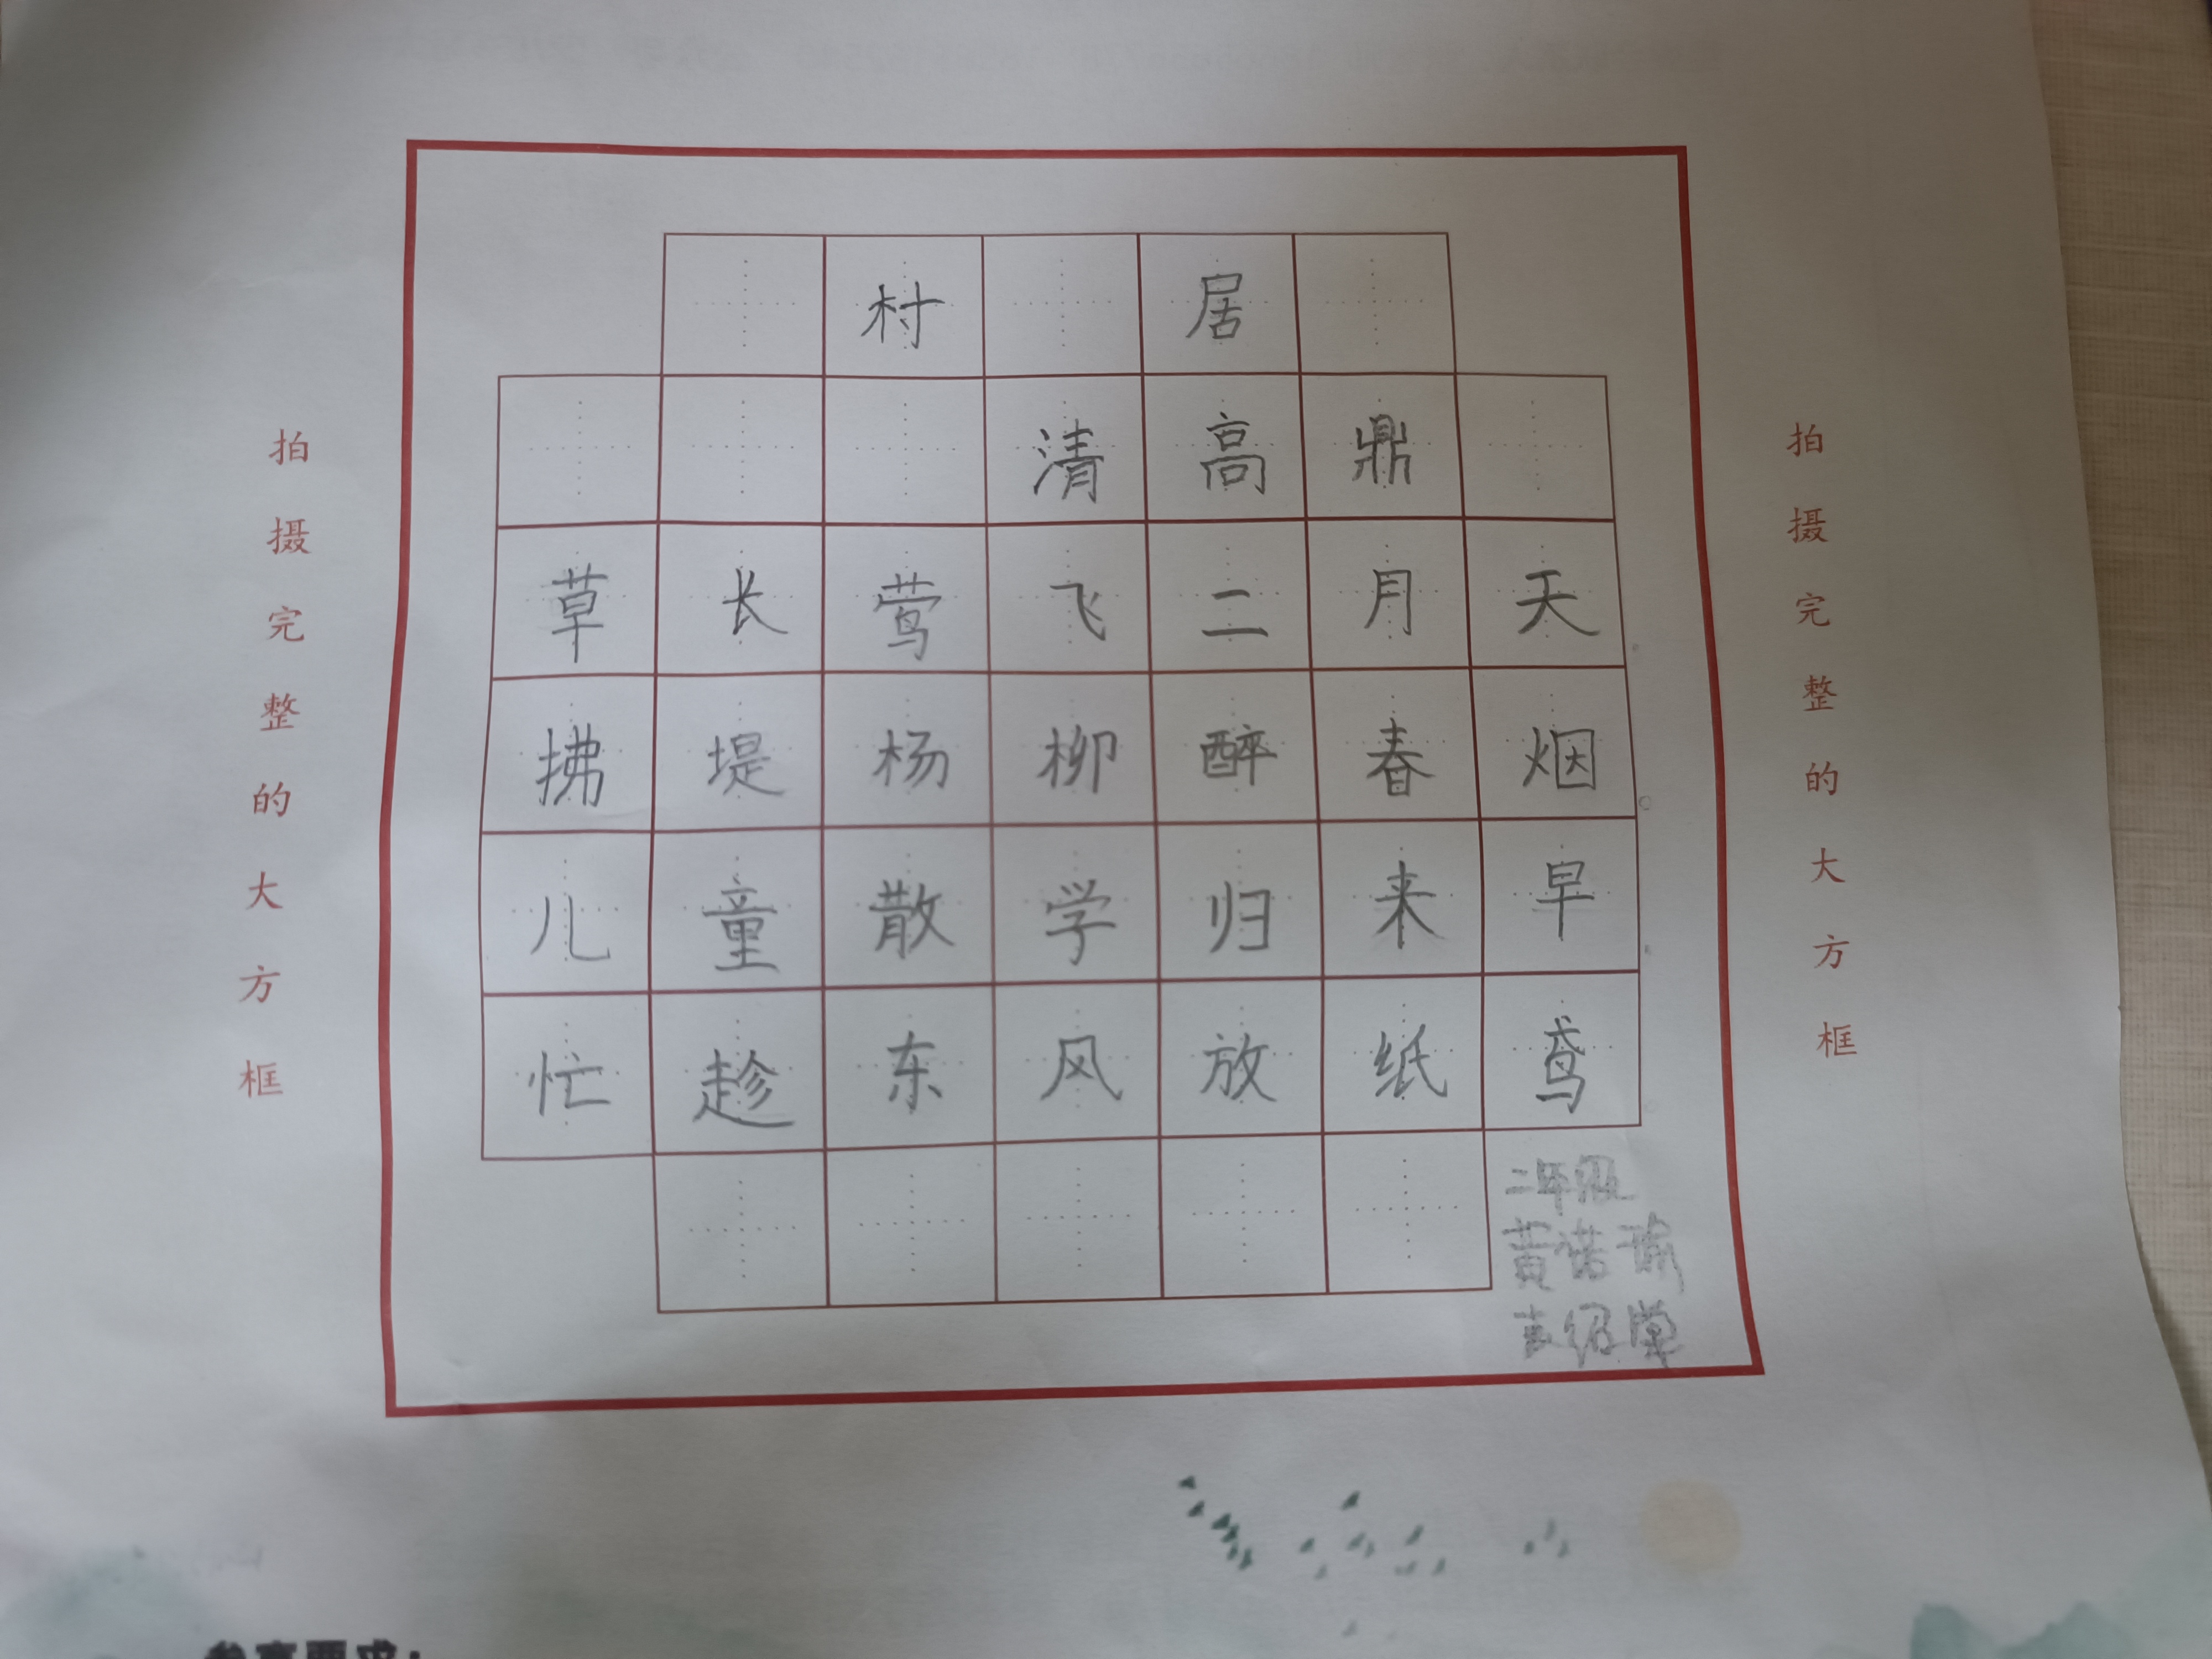 村居
清高鼎
草长莺飞二月天
拂堤杨柳醉春烟
儿童散学归来早
忙趁东风放纸鸢
二年级
黄诺瑜
拍摄完整的大方框
拍摄完整的大方框
参赛要求: